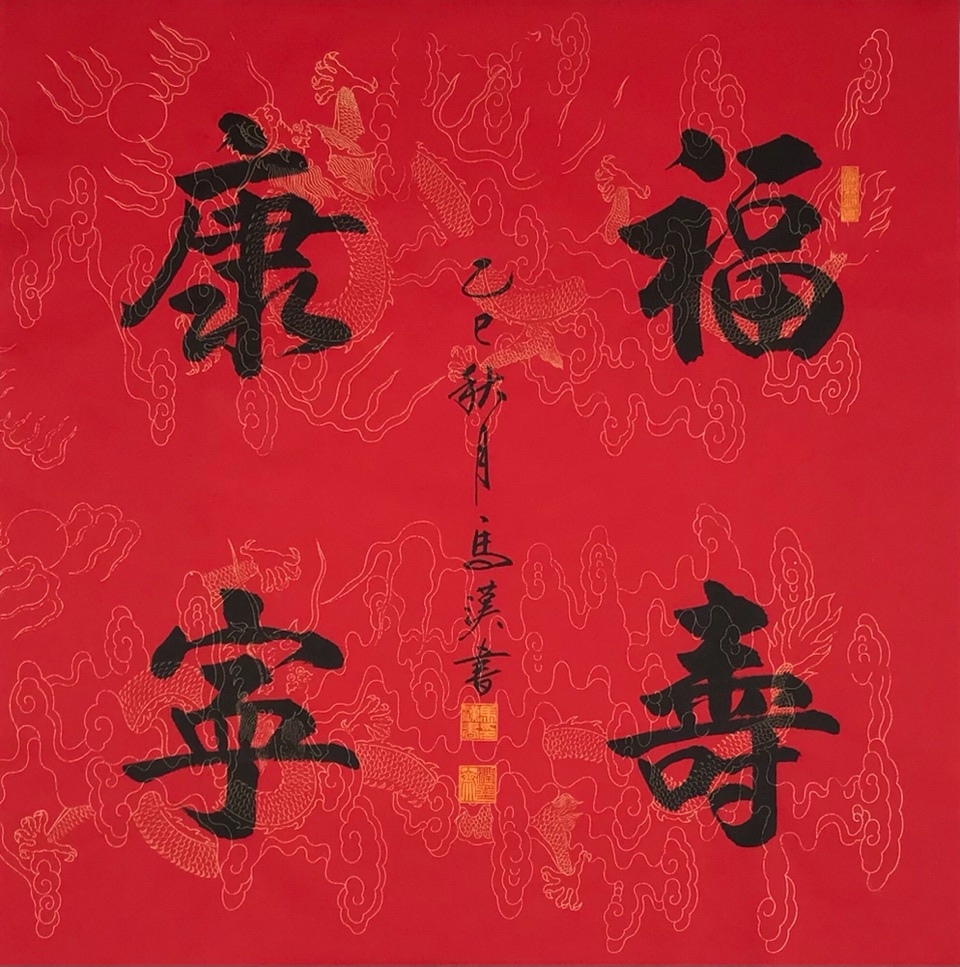 福壽
康寧
乙巳秋月馬漢書